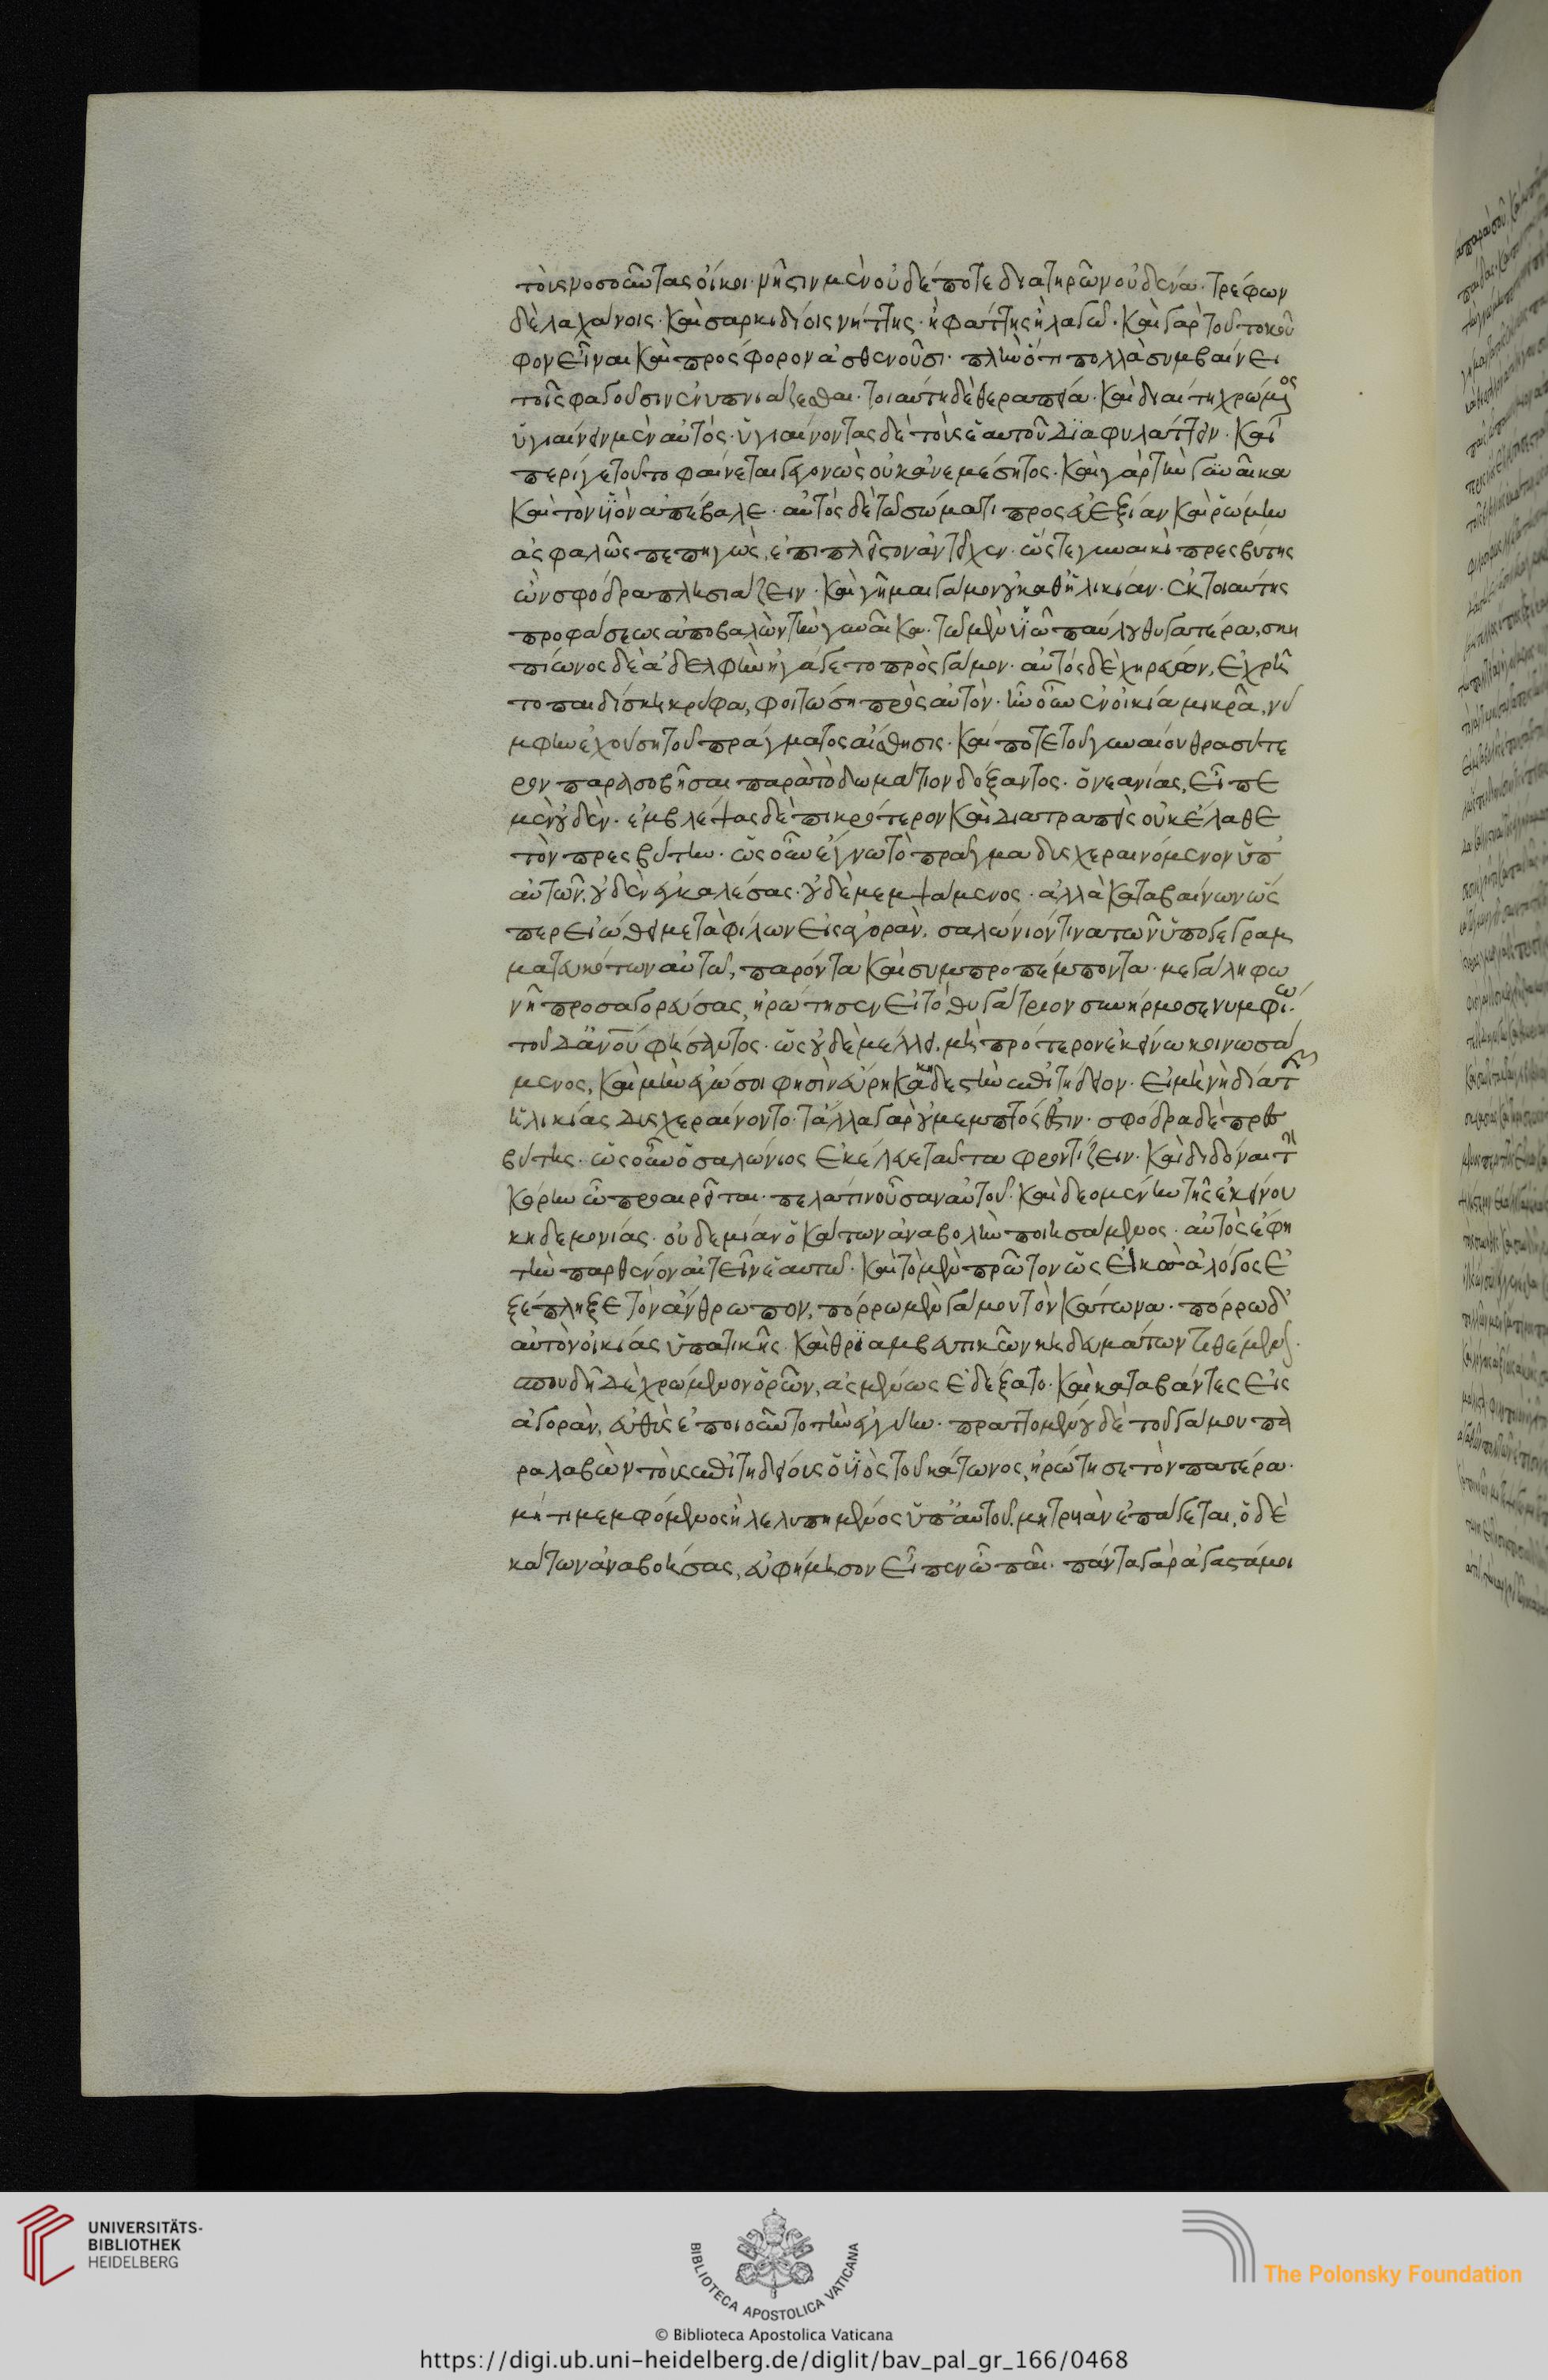 τοὺς νοσοῦντας οἴκοι· νῆστιν μὲν οὐδέποτε διατηρῶν οὐδένα· τρέφων
δὲ λαχάνοις· καὶ σαρκιδίοις νήττης· ἢ φάττης ἢ λαγὼ· καὶ γὰρ τοῦτο κοῦ
φον εἶναι καὶ πρόσφορον ἀσθενοῦσι· πλὴν ὅτι πολλὰ συμβαίνει
τοῖς φαγοῦσιν ἐνυπνιάζεσθαι· τοιαύτῃ δὲ θεραπείᾳ· καὶ διαίτῃ χρώμενος
ὑγιαίνειν μὲν αὐτὸς· ὑγιαίνοντας δὲ τοὺς ἑαυτοῦ διαφυλάττειν· καὶ
περί γε τοῦτο φαίνεται γεγονὼς οὐκ ἀνεμέσητος· καὶ γὰρ τὴν γυναῖκα
καὶ τὸν υἱὸν ἀπέβαλε· αὐτὸς δὲ τῷ σώματι πρὸς εὐεξίαν καὶ ῥώμην
ἀσφαλῶς πεπηγὼς, ἐπιπλεῖστον ἀντεῖχεν· ὥστε γυναικὶ πρεσβύτης
ὢν σφόδρα πλησιάζειν· καὶ γῆμαι γάμον οὐ καθ' ἡλικίαν· ἐκ τοιαύτης
προφάσεως ἀποβαλὼν τὴν γυναῖκα· τῷ μὲν υἱῷ παύλου θυγατέρα, σκη
πίωνος δὲ ἀδελφὴν ἠγάγετο πρὸς γάμον· αὐτὸς δὲ χηρεύων, ἐχρῆ
το παιδίσκῃ κρύφα, φοιτώσῃ πρὸς αὐτὸν· ἦν οὖν ἐν οἰκίᾳ μικρᾷ, νύ
μφην ἐχούσῃ τοῦ πράγματος αἴσθησις· καί ποτε τοῦ γυναίου θρασύτε
ρον παρασοβῆσαι παρὰ τὸ δωμάτιον δόξαντος· ὁ νεανίας, εἶπε
μὲν οὐδὲν· ἐμβλέψας δὲ πικρότερον καὶ διατραπεὶς οὐκ ἔλαθε
τὸν πρεσβύτην· ὡς οὖν ἔγνω τὸ πρᾶγμα δυσχεραινόμενον ὑπ'
αὐτῶν, οὐδὲν ἐγκαλέσας· οὐδὲ μεμψάμενος· ἀλλὰ καταβαίνων ὥς
περ εἰώθει μετὰ φίλων εἰς ἀγορὰν, σαλώνιόν τινα τῶν ὑπογεγραμ
ματευκότων αὐτῷ, παρόντα καὶ συμπροπέμποντα· μεγάλῃ φω
νῇ προσαγορεύσας, ἠρώτησεν εἰ τὸ θυγάτριον συνήρμοσε νυμφίῳ·
τοῦ δ' ἀνθρώπου φήσαντος· ὡς οὐδὲ μέλλει, μὴ πρότερον ἐκείνῳ κοινωσά
μενος, καὶ μὴν ἐγώ σοι φησὶν εὕρηκα κηδεστὴν ἐπιτήδειον· εἰ μὴ νὴ δία τὰ τῆς
ἡλικίας δυσχεραίνοιτο· τἄλλα γὰρ οὐ μεμπτός ἐστιν· σφόδρα δὲ πρεσ
βύτης· ὡς οὖν ὁ σαλώνιος ἐκέλευε ταῦτα φροντίζειν· καὶ διδόναι τὴν
κόρην ᾧ προαιρεῖται· πελάτιν οὖσαν αὐτοῦ· καὶ δεομένην τῆς ἐκείνου
κηδεμονίας· οὐδεμίαν ὁ κάτων ἀναβολὴν ποιησάμενος· αὐτὸς ἔφη
τὴν παρθένον αἰτεῖν ἑαυτῷ· καὶ τὸ μὲν πρῶτον ὡς εἰκὸς ὁ λόγος ἐ
ξέπληξε τὸν ἄνθρωπον, πόρρω μὲν γάμου τὸν κάτωνα· πόρρω δ'
αὐτὸν οἰκίας ὑπατικῆς· καὶ θριαμβευτικῶν κηδευμάτων τιθέμενος·
σπουδῇ δὲ χρώμενον ὁρῶν, ἀσμένως ἐδέξατο· καὶ καταβάντες εἰς
ἀγορὰν, εὐθὺς ἐποιοῦντο τὴν ἐγγύην· πραττομένου δὲ τοῦ γάμου πα
ραλαβὼν τοὺς ἐπιτηδείους ὁ υἱὸς τοῦ κάτωνος, ἠρώτησε τὸν πατέρα·
μή τι μεμφόμενος ἢ λελυπημένος ὑπ' αὐτοῦ, μητρυιὰν ἐπάγεται, ὁ δὲ
κάτων ἀναβοήσας, εὐφήμησον εἶπεν ὦ παῖ· πάντα γὰρ ἀγαστά μοι
UNIVERSITÄTS-
BIBLIOTHEK
HEIDELBERG
BIBLIOTECA APOSTOLICA VATICANA
The Polonsky Foundation
© Biblioteca Apostolica Vaticana
https://digi.ub.uni-heidelberg.de/diglit/bav_pal_gr_166/0468